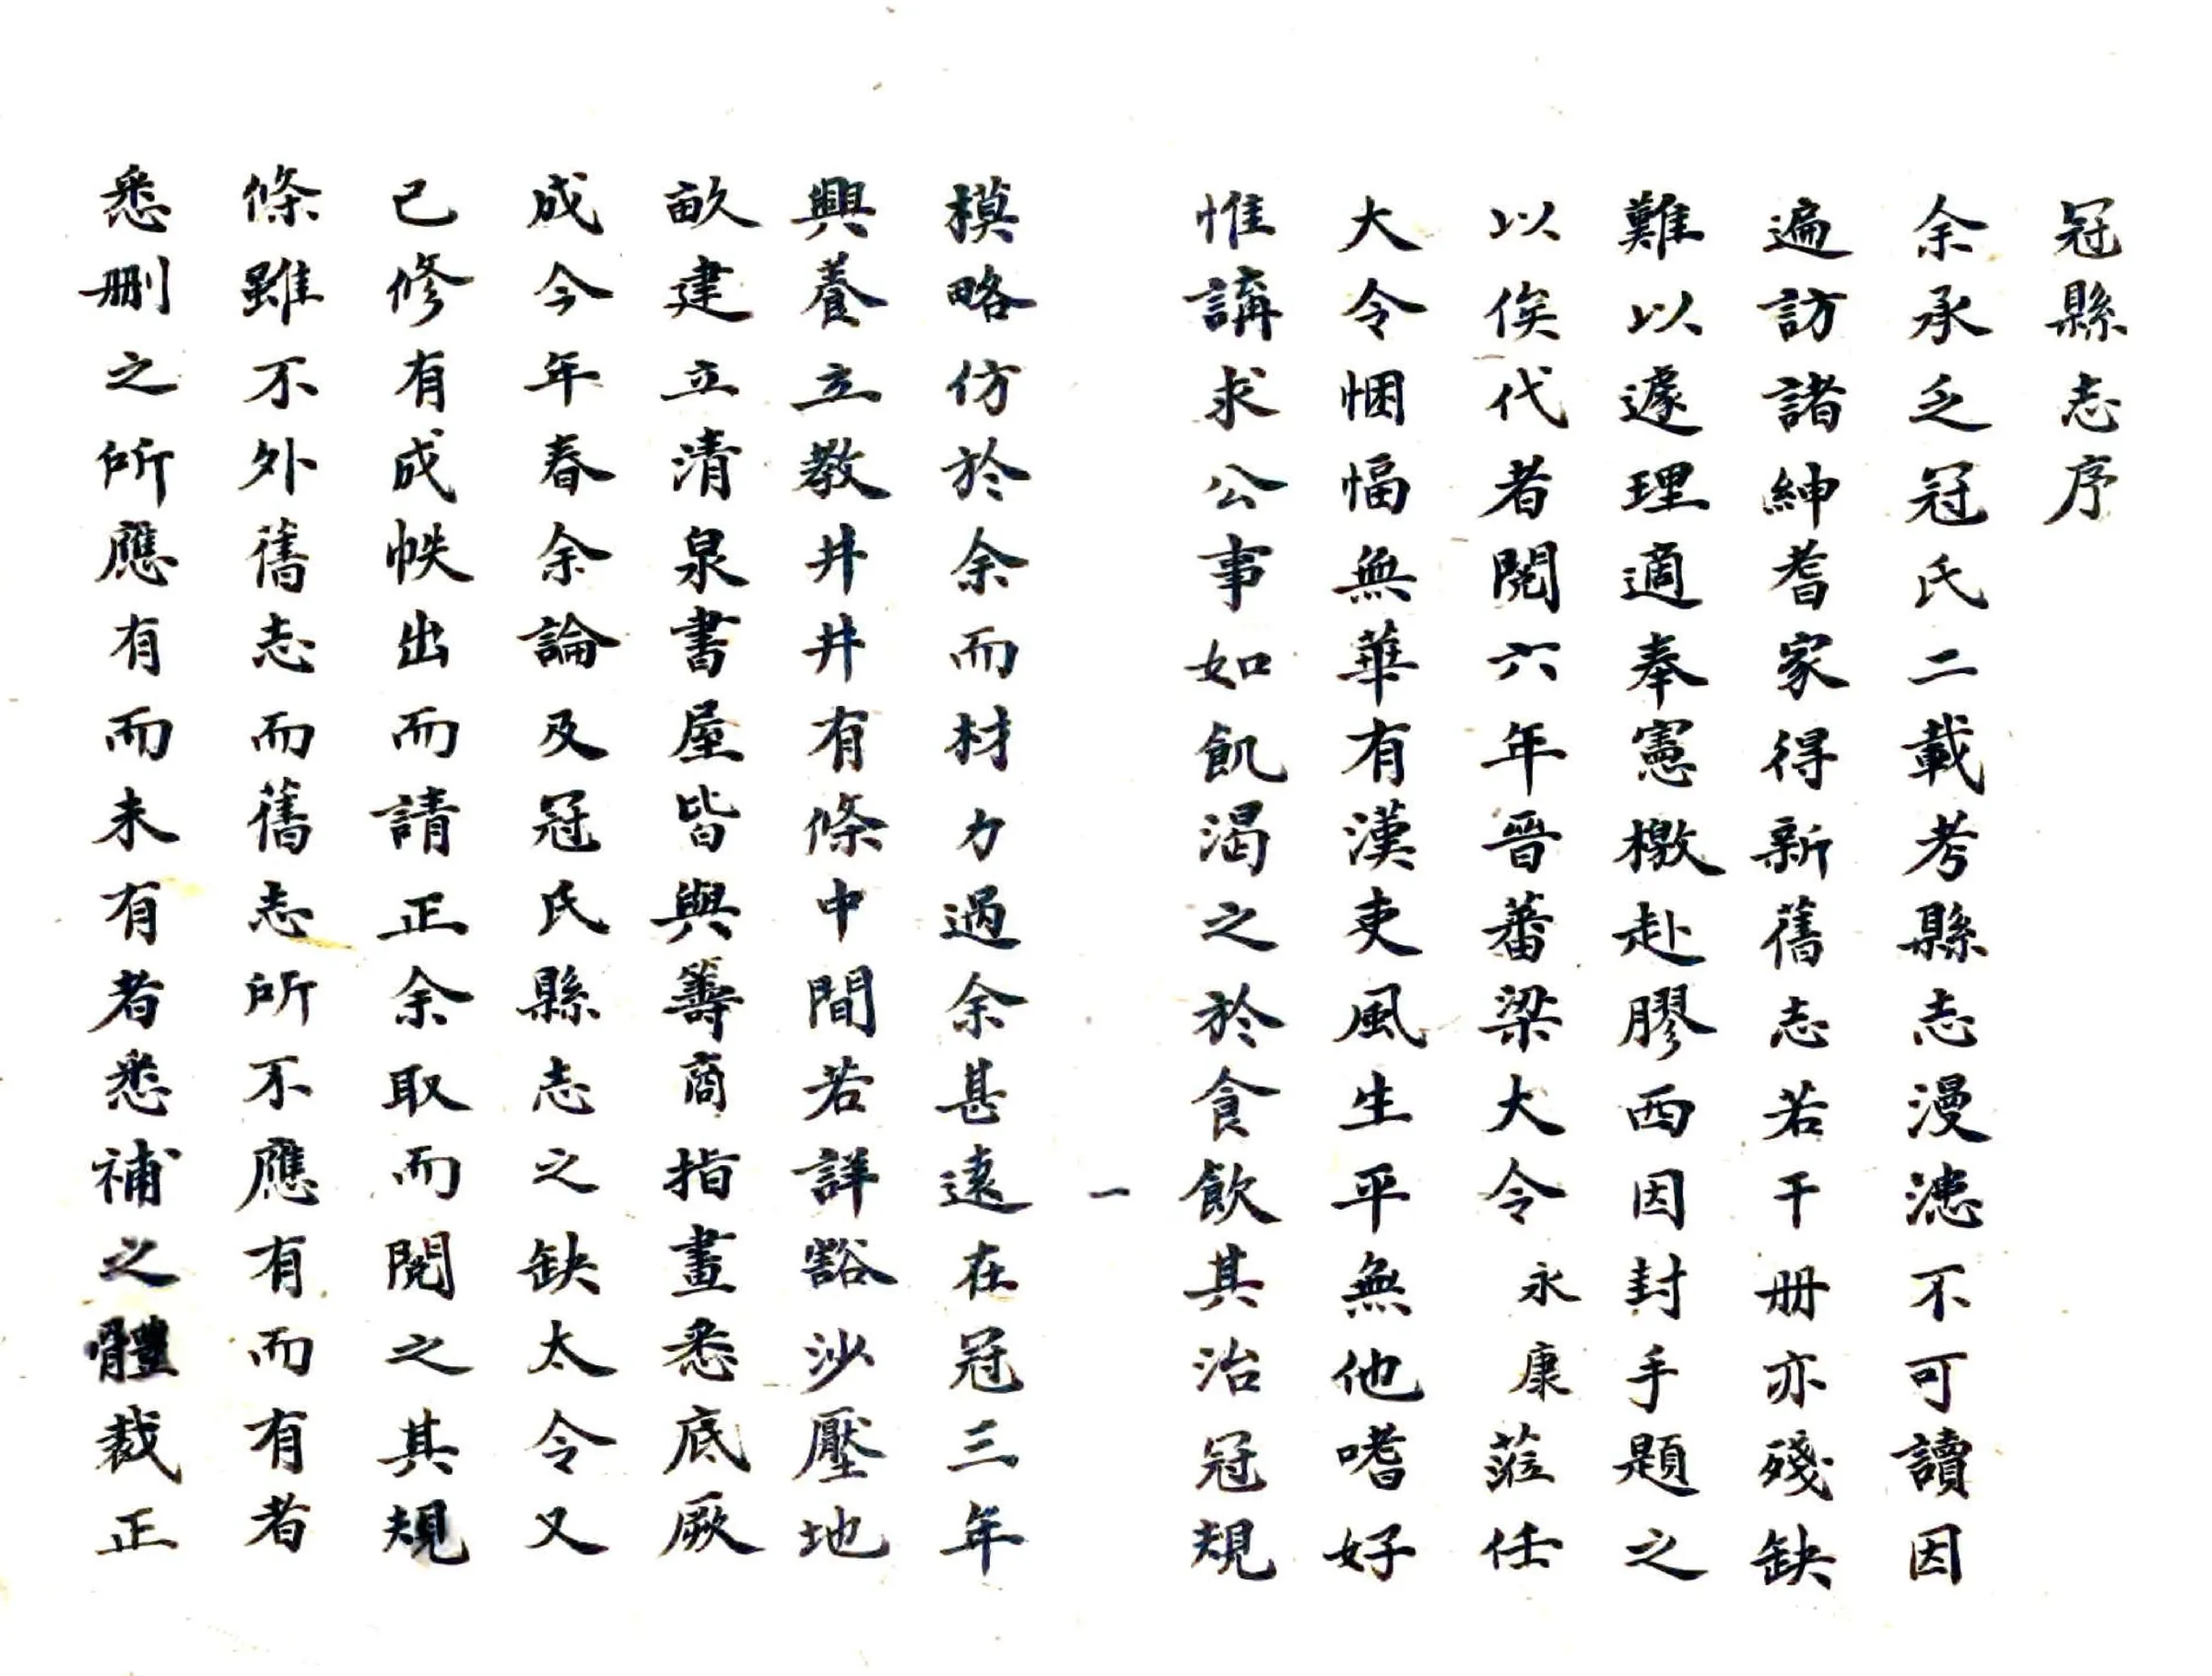 冠縣志序
余承乏冠氏二載考縣志漫漶不可讀因
遍訪諸紳耆家得新舊志若干册亦殘缺
難以遽理適奉憲檄赴膠西因封手題之
以俟代者閱六年晉蕃梁大令永康蒞任
大令悃愊無華有漢吏風生平無他嗜好
惟講求公事如飢渴之於食飲其治冠規
一
模略仿於余而材力過余甚遠在冠三年
興養立教井井有條中間若詳豁沙壓地
畝建立清泉書屋皆與籌商指畫悉底厥
成今年春余論及冠氏縣志之缺太令又
已修有成帙出而請正余取而閱之其規
條雖不外舊志而舊志所不應有而有者
悉刪之所應有而未有者悉補之體裁正